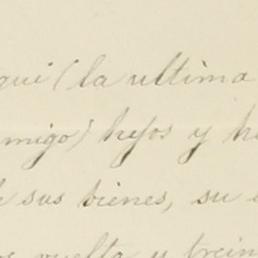 qui (la ultima
migo) hijos y h
sus bienes, su
vuelta y trein